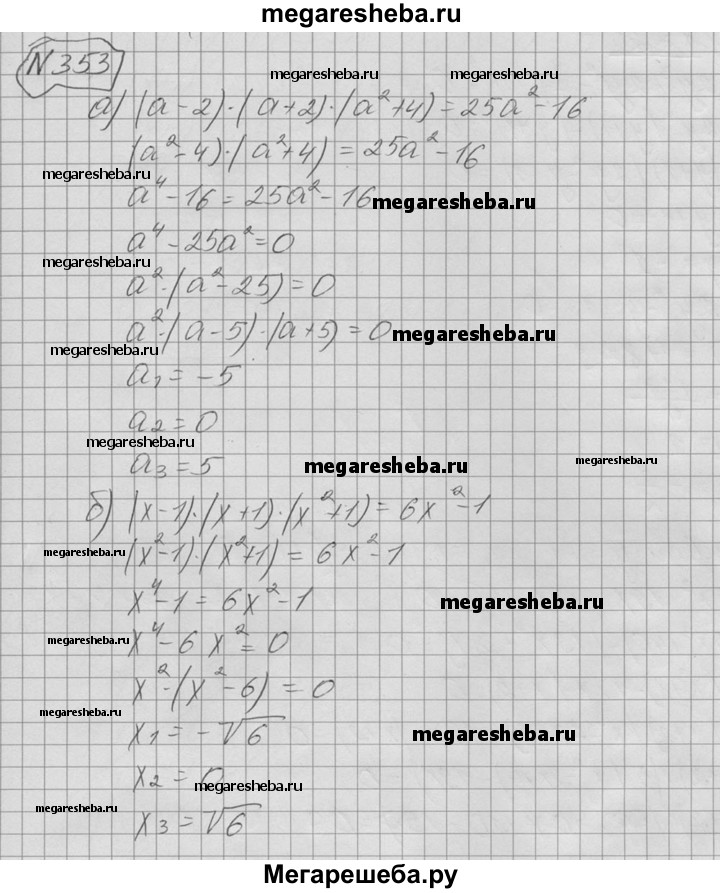 megaresheba.ru
N 353
megaresheba.ru megaresheba.ru
а) (a-2)·(a+2)·(a²+4)=25a²-16
(a²-4)·(a²+4)=25a²-16
megaresheba.ru
a⁴-16=25a²-16
megaresheba.ru
a⁴-25a²=0
megaresheba.ru
a²·(a²-25)=0
a²·(a-5)·(a+5)=0
megaresheba.ru
megaresheba.ru
a₁=-5
a₂=0
megaresheba.ru
a₃=5
megaresheba.ru
megaresheba.ru
б) (x-1)·(x+1)·(x²+1)=6x²-1
megaresheba.ru
(x²-1)·(x²+1)=6x²-1
x⁴-1=6x²-1
megaresheba.ru
megaresheba.ru
x⁴-6x²=0
x²·(x²-6)=0
megaresheba.ru
x₁=-√6
megaresheba.ru
x₂=0
megaresheba.ru
megaresheba.ru
x₃=√6
Мегарешеба.ру